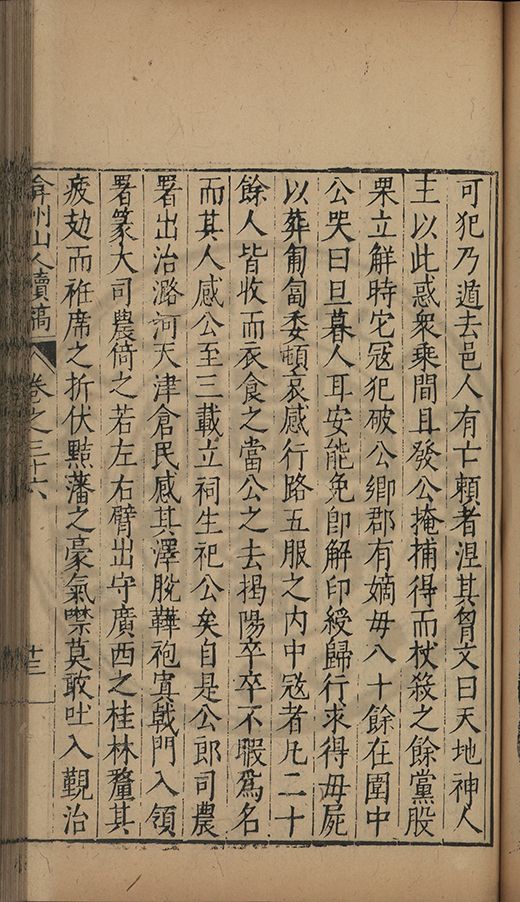 可犯乃遁去邑人有亡賴者涅其胷文曰天地神人
主以此惑衆乘間且發公掩捕得而杖殺之餘黨股
栗立觧時它冦犯破公鄉郡有嫡毋八十餘在圍中
公哭曰旦暮人耳安能免卽解印綬歸行求得毋屍
以葬匍匐委頓哀感行路五服之內中冦者凡二十
餘人皆收而衣食之當公之去揭陽卒卒不暇爲名
而其人感公至三載立祠生祀公矣自是公郎司農
署出治潞河天津倉民感其澤脫鞾袍寘戟門入領
署篆大司農倚之若左右臂出守廣西之桂林釐其
疲劾而袵席之折伏黠藩之豪氣噤莫敢吐入觐治
弇州山人續稿 卷之三十六 十三